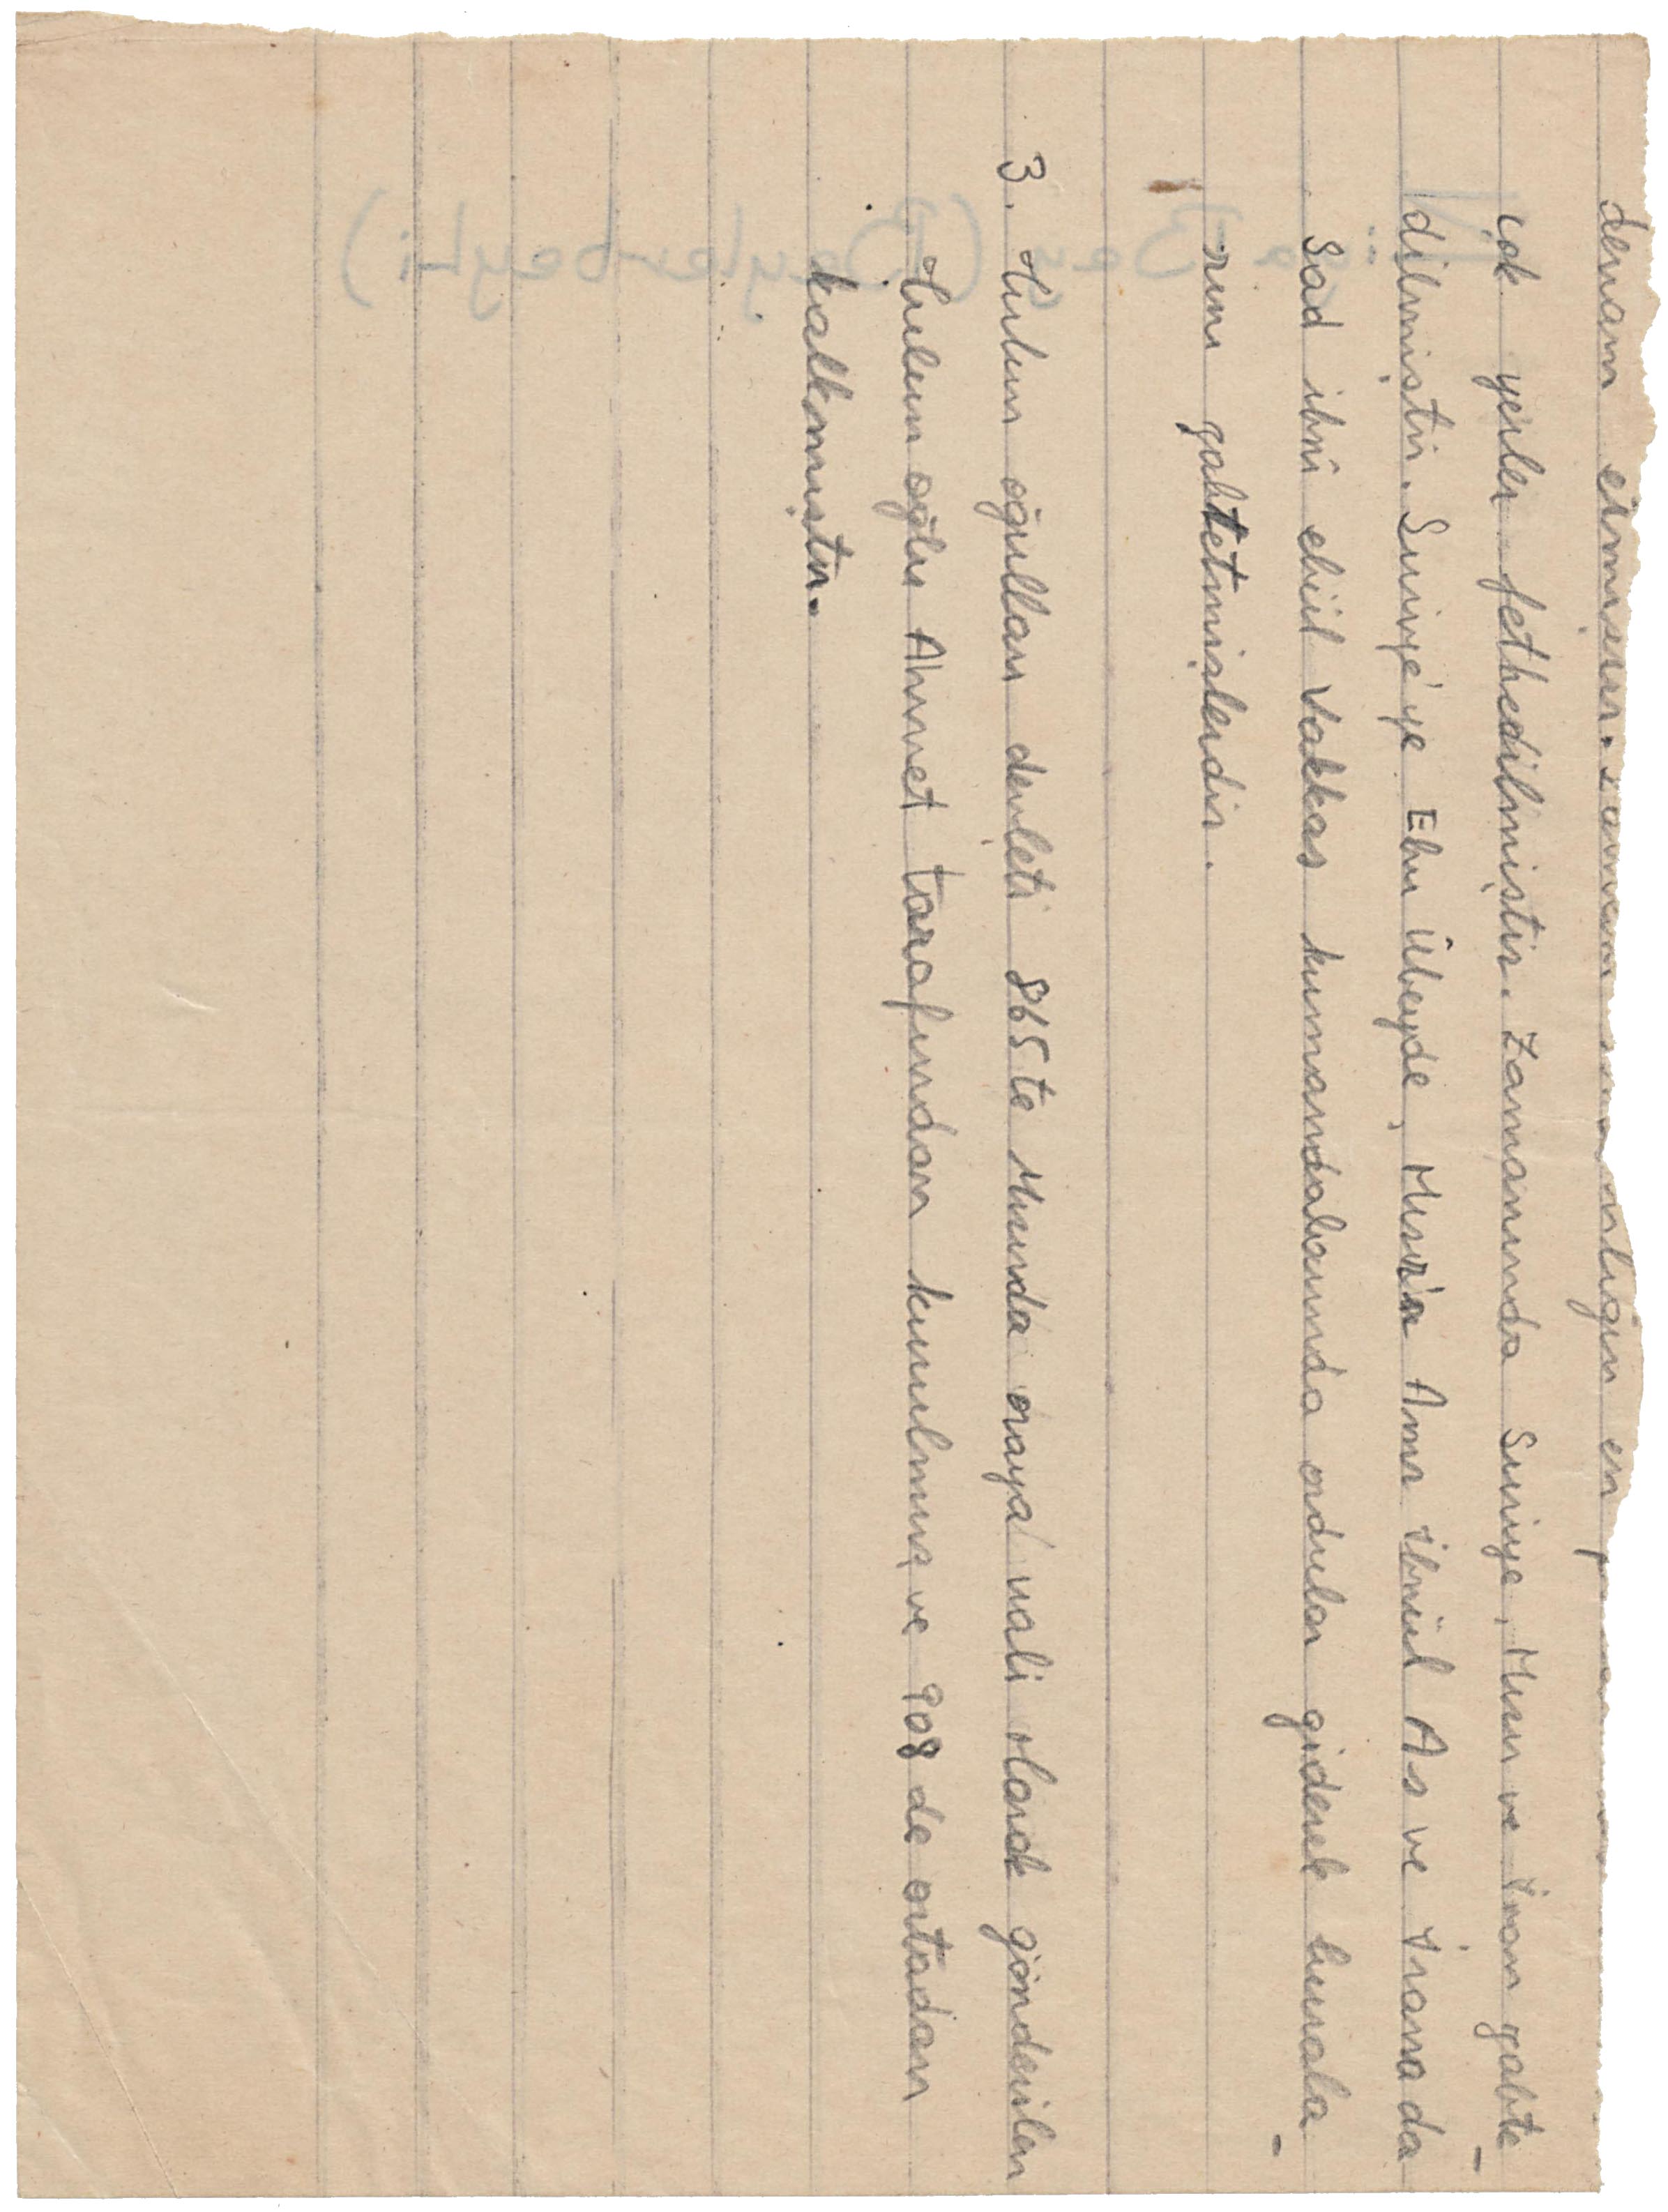 devam etmiştir. en
çok yerler fethedilmiştir. Zamanında Suriye, Mısır ve İran zabte-
dilmiştir. Suriye'ye Ebu Übeyde, Mısır'a Amr ibnül As ve İrana da
Sad ibni ebül Vakkas kumandalarında ordular giderek burala-
rını zabtetmişlerdir.
3. Tulun oğulları devleti 865 te Mısırda oraya vali olarak gönderilen
Tulun oğlu Ahmet tarafından kurulmuş ve 908 de ortadan
kalkmıştır.
Ziya Bay (Baylarbayli)